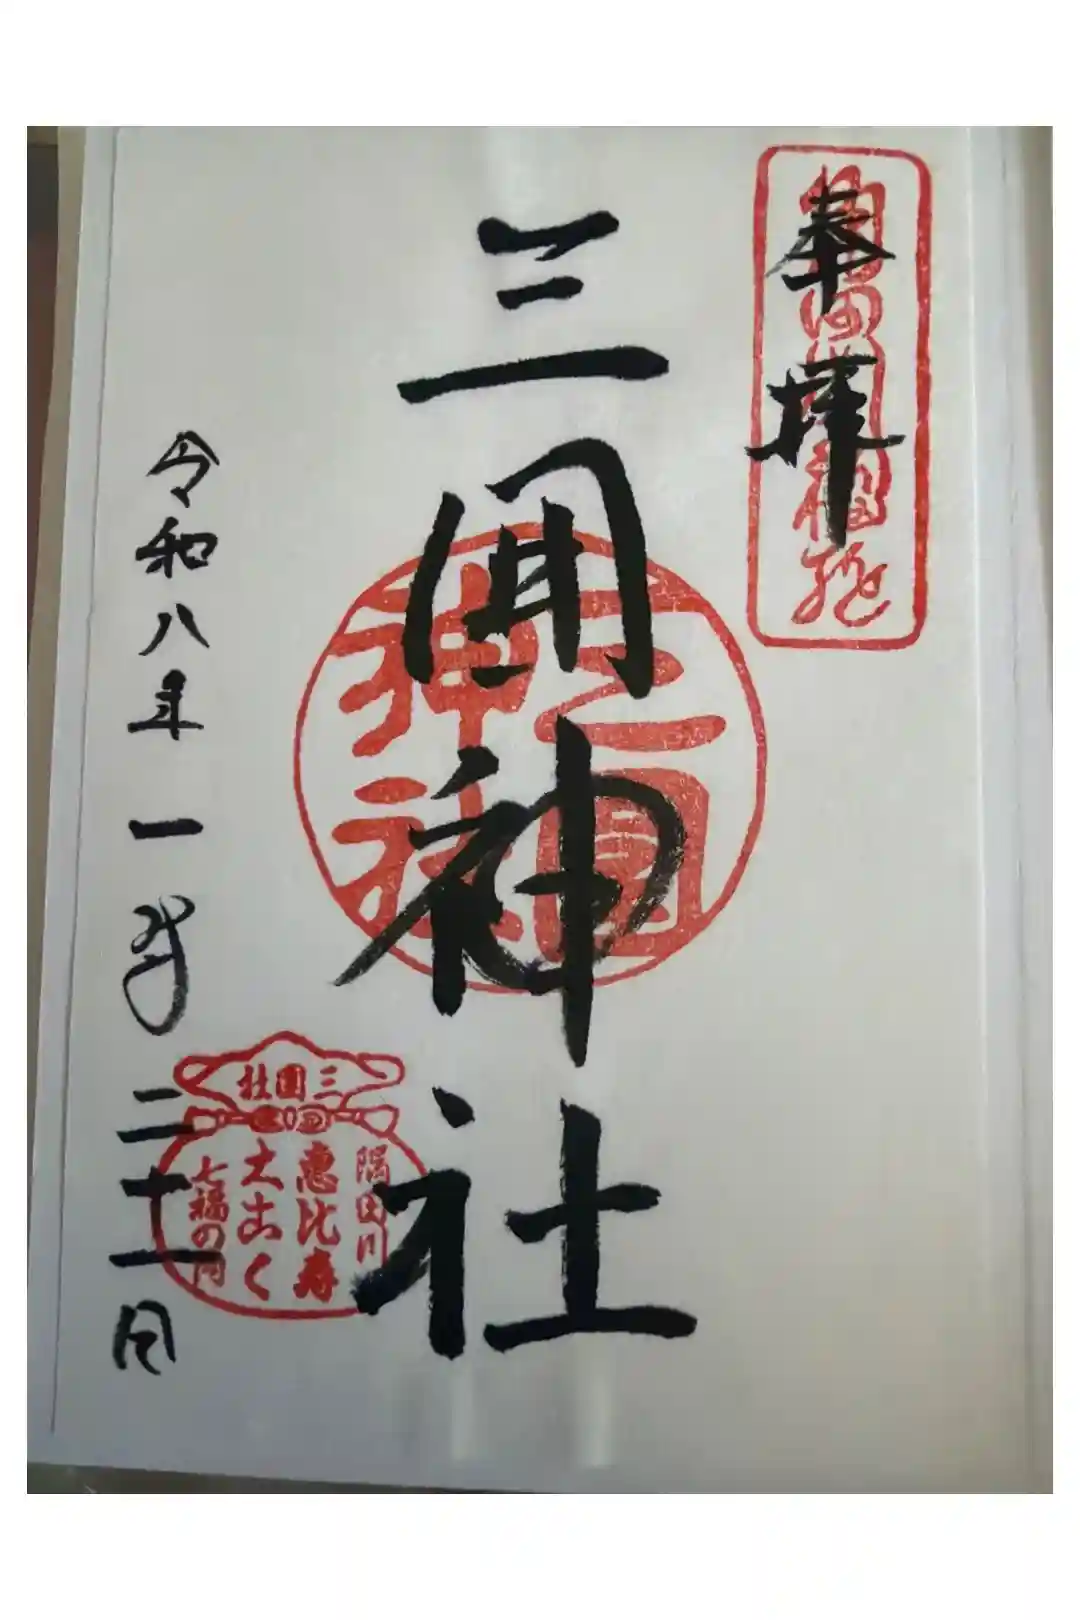 奉拝
三囲神社
三囲神社
令和八年一月二十一日
三囲社
隅田川
恵比寿
大こく
七福の内